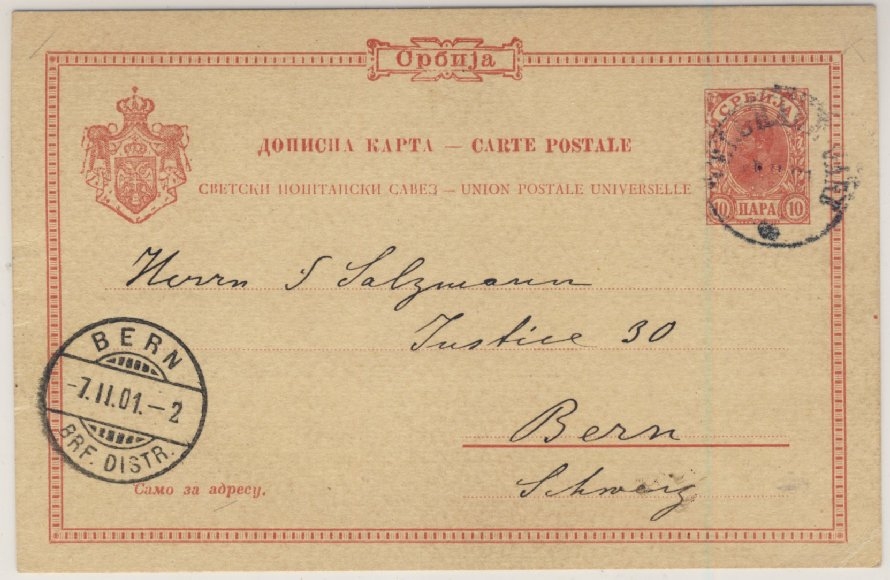 Србија
СРБИЈА
ДОПИСНА КАРТА — CARTE POSTALE
СВЕТСКИ ПОШТАНСКИ САВЕЗ — UNION POSTALE UNIVERSELLE
10 ПАРА 10
Herrn S Salzmann
Justice 30
Bern
Schweiz
BERN
-7.II.01.-2
BRF. DISTR.
Само за адресу.